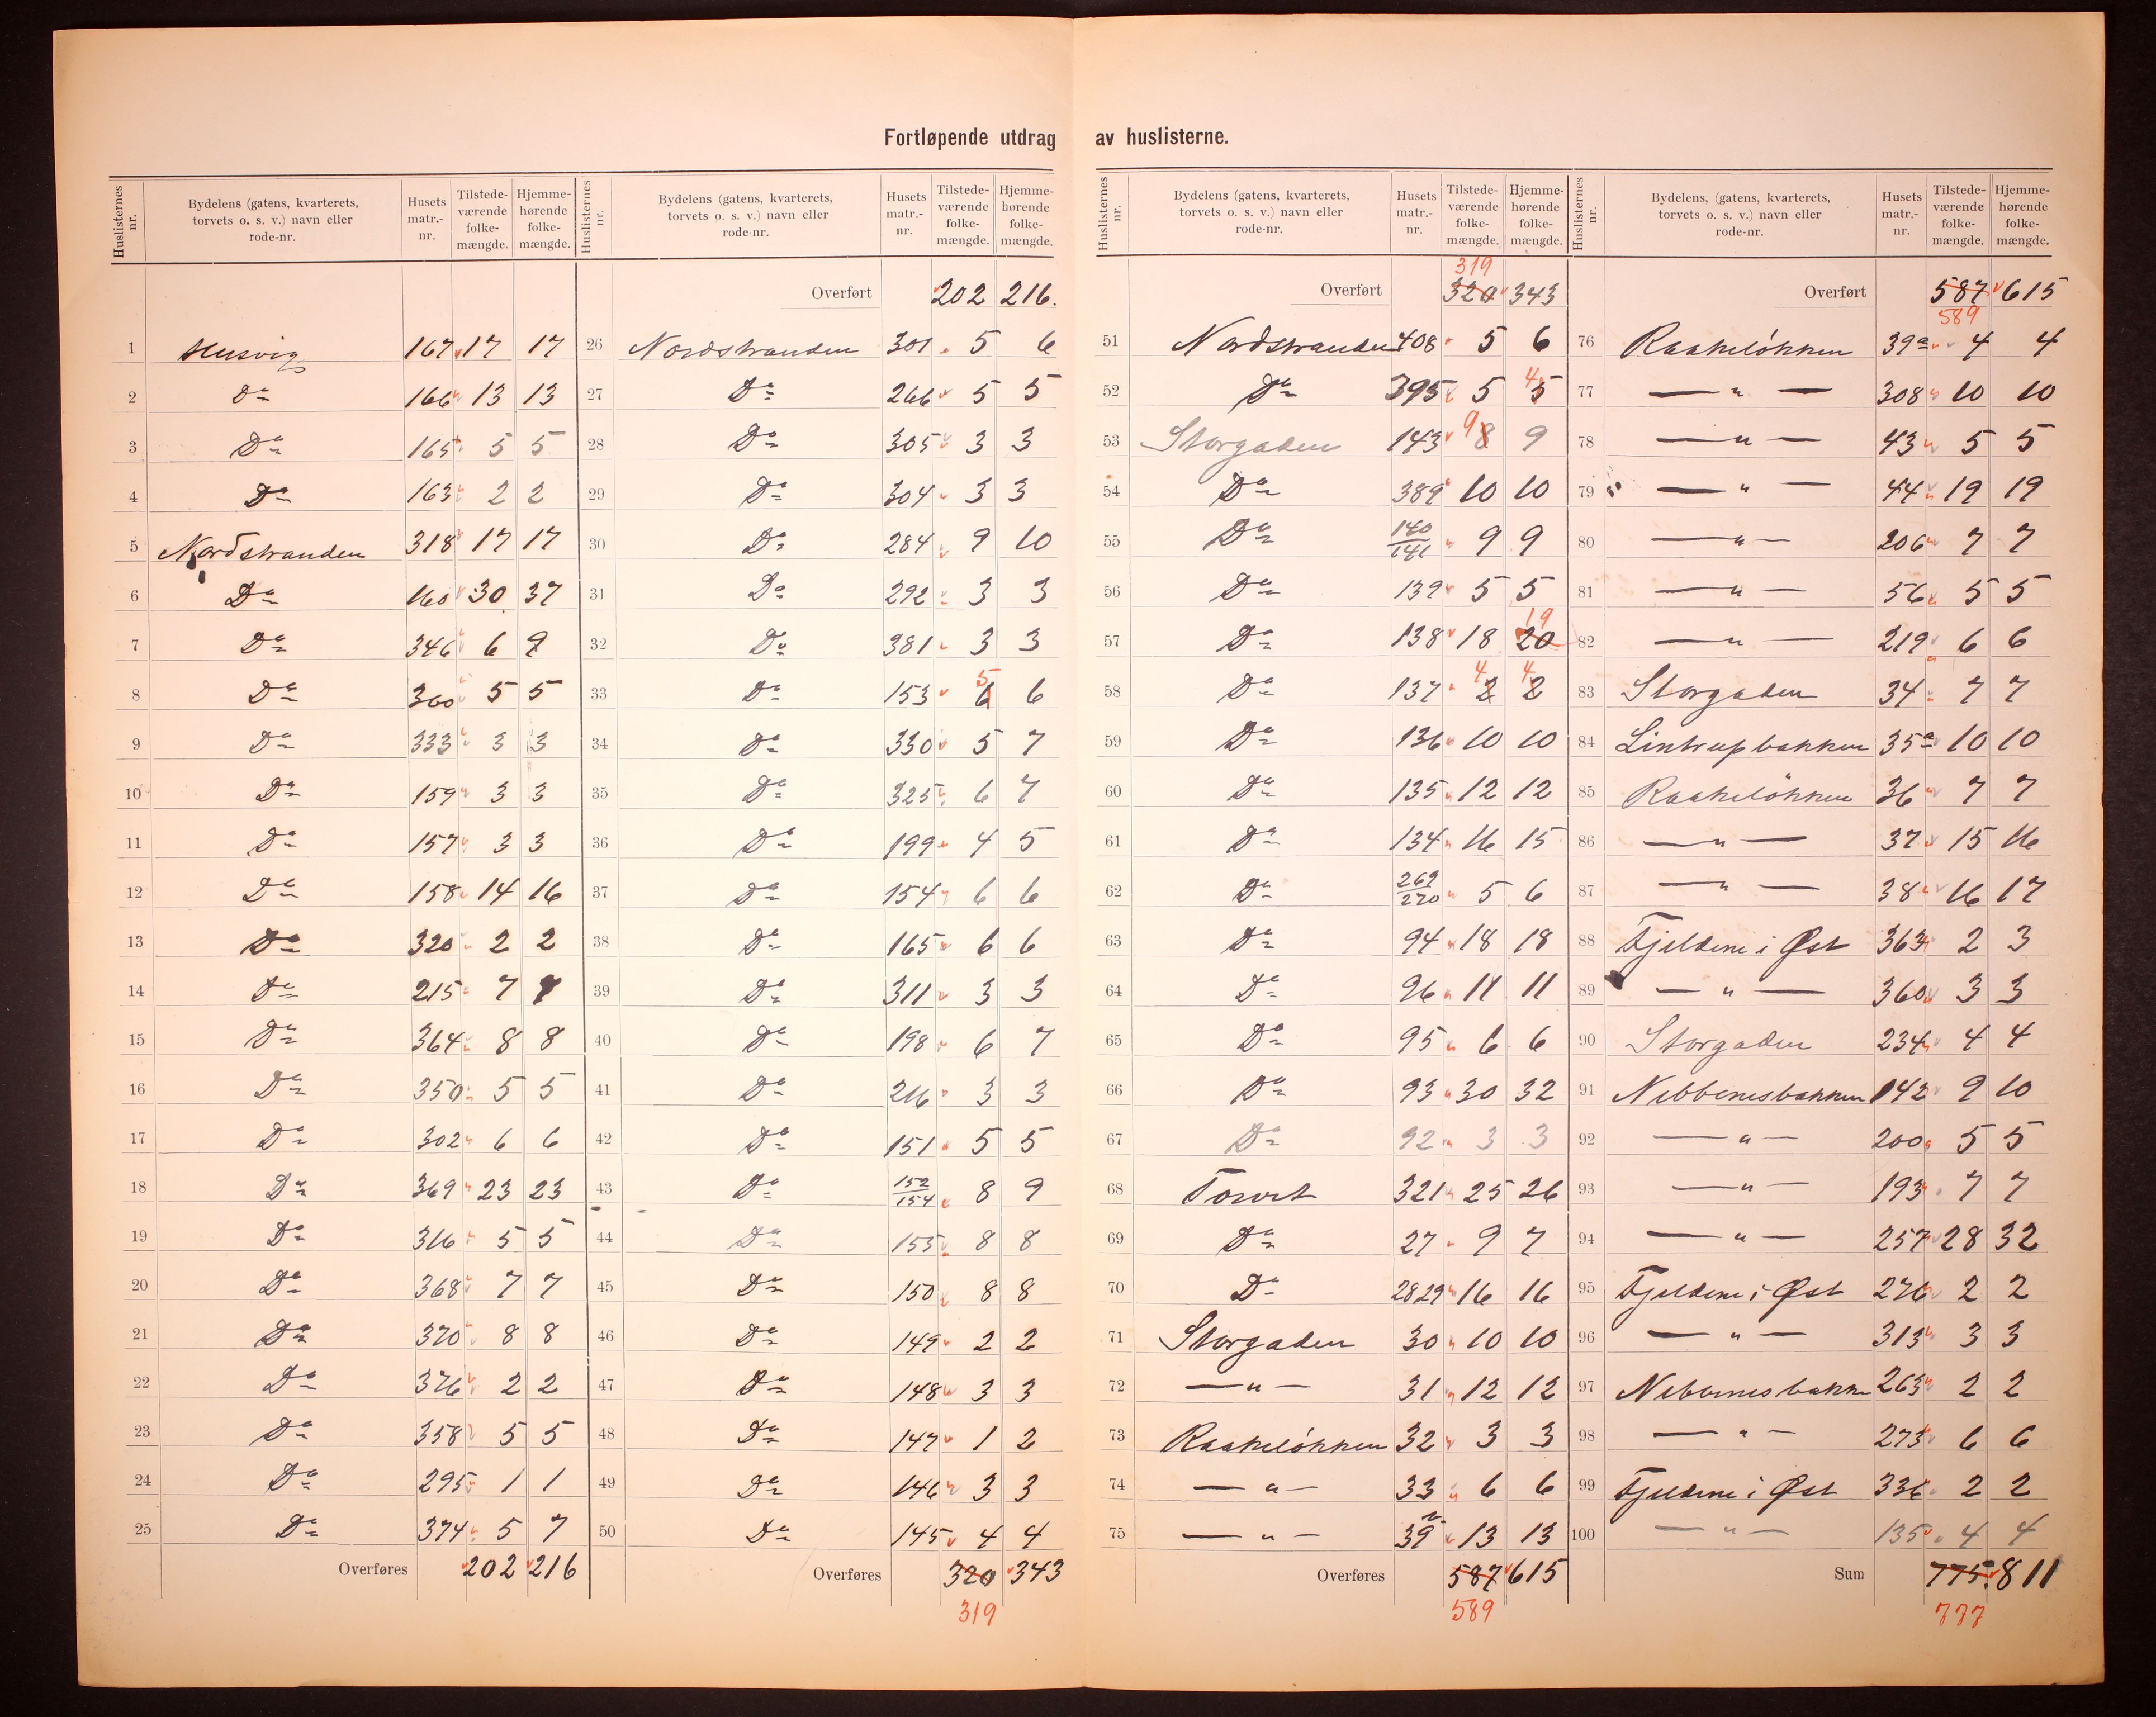 Fortløpende utdrag av huslisterne.
Huslisternes nr. | Bydelens (gatens, kvarterets, torvets o. s. v.) navn eller rode-nr. | Husets matr.-nr. | Tilstede-værende folke-mængde. | Hjemme-hørende folke-mængde.
1 Husvig 167 17 17
2 Do 166 13 13
3 Do 165 5 5
4 Do 163 2 2
5 Nordstranden 318 17 17
6 Do 160 30 37
7 Do 346 6 9
8 Do 360 5 5
9 Do 333 3 3
10 Do 159 3 3
11 Do 157 3 3
12 Do 158 14 16
13 Do 320 2 2
14 Do 215 7
15 Do 364 8 8
16 Do 350 5 5
17 Do 302 6 6
18 Do 369 23 23
19 Do 316 5 5
20 Do 368 7 7
21 Do 370 8 8
22 Do 376 2 2
23 Do 358 5 5
24 Do 295 1 1
25 Do 374 5 7
Overføres 202 216
Huslisternes nr. | Bydelens (gatens, kvarterets, torvets o. s. v.) navn eller rode-nr. | Husets matr.-nr. | Tilstede-værende folke-mængde. | Hjemme-hørende folke-mængde.
Overført 202 216.
26 Nordstranden 301 5 6
27 Do 266 5 5
28 Do 305 3 3
29 Do 304 3 3
30 Do 284 9 10
31 Do 292 3 3
32 Do 381 3 3
33 Do 153 6 5 6
34 Do 330 5 7
35 Do 325 6 7
36 Do 199 4 5
37 Do 154 6 6
38 Do 165 6 6
39 Do 311 3 3
40 Do 198 6 7
41 Do 216 3 3
42 Do 151 5 5
43 Do 152/154 8 9
44 Do 155 8 8
45 Do 150 8 8
46 Do 149 2 2
47 Do 148 3 3
48 Do 147 1 2
49 Do 146 3 3
50 Do 145 4 4
Overføres 320 343
319
Huslisternes nr. | Bydelens (gatens, kvarterets, torvets o. s. v.) navn eller rode-nr. | Husets matr.-nr. | Tilstede-værende folke-mængde. | Hjemme-hørende folke-mængde.
319
Overført 320 343
51 Nordstranden 408 5 6
52 Do 395 5 5 4
53 Storgaden 143 8 9 9
54 Do 389 10 10
55 Do 140/141 9 9
56 Do 139 5 5
57 Do 138 18 20 19
58 Do 137 2 4 2 4
59 Do 136 10 10
60 Do 135 12 12
61 Do 134 16 15
62 Do 269/270 5 6
63 Do 94 18 18
64 Do 96 11 11
65 Do 95 6 6
66 Do 93 30 32
67 Do 92 3 3
68 Torvet 321 25 26
69 Do 27 9 7
70 Do 28 29 16 16
71 Storgaden 30 10 10
72 — " — 31 12 12
73 Raakeløkken 32 3 3
74 — " — 33 6 6
75 — " — 39 13 13
Overføres 587 615
589
Huslisternes nr. | Bydelens, (gatens, kvarterets, torvets o. s. v.) navn eller rode-nr. | Husets matr.-nr. | Tilstede-værende folke-mængde. | Hjemme-hørende folke-mængde.
Overført 587 615
589
76 Raakeløkken 39a 4 4
77 — " — 308 10 10
78 — " — 43 5 5
79 — " — 44 19 19
80 — " — 206 7 7
81 — " — 56 5 5
82 — " — 219 6 6
83 Storgaden 34 7 7
84 Lintrupbakken 35a 10 10
85 Raakeløkken 36 7 7
86 — " — 37 15 16
87 — " — 38 16 17
88 Fjeldene i Øst 363 2 3
89 — " — 360 3 3
90 Storgaden 234 4 4
91 Nibbenesbakken 142 9 10
92 — " — 200 5 5
93 — " — 193 7 7
94 — " — 257 28 32
95 Fjeldene i Øst 276 2 2
96 — " — 313 3 3
97 Nibbenesbakken 263 2 2
98 — " — 273 6 6
99 Fjeldene i Øst 336 2 2
100 — " — 135 4 4
Sum 775 811
777